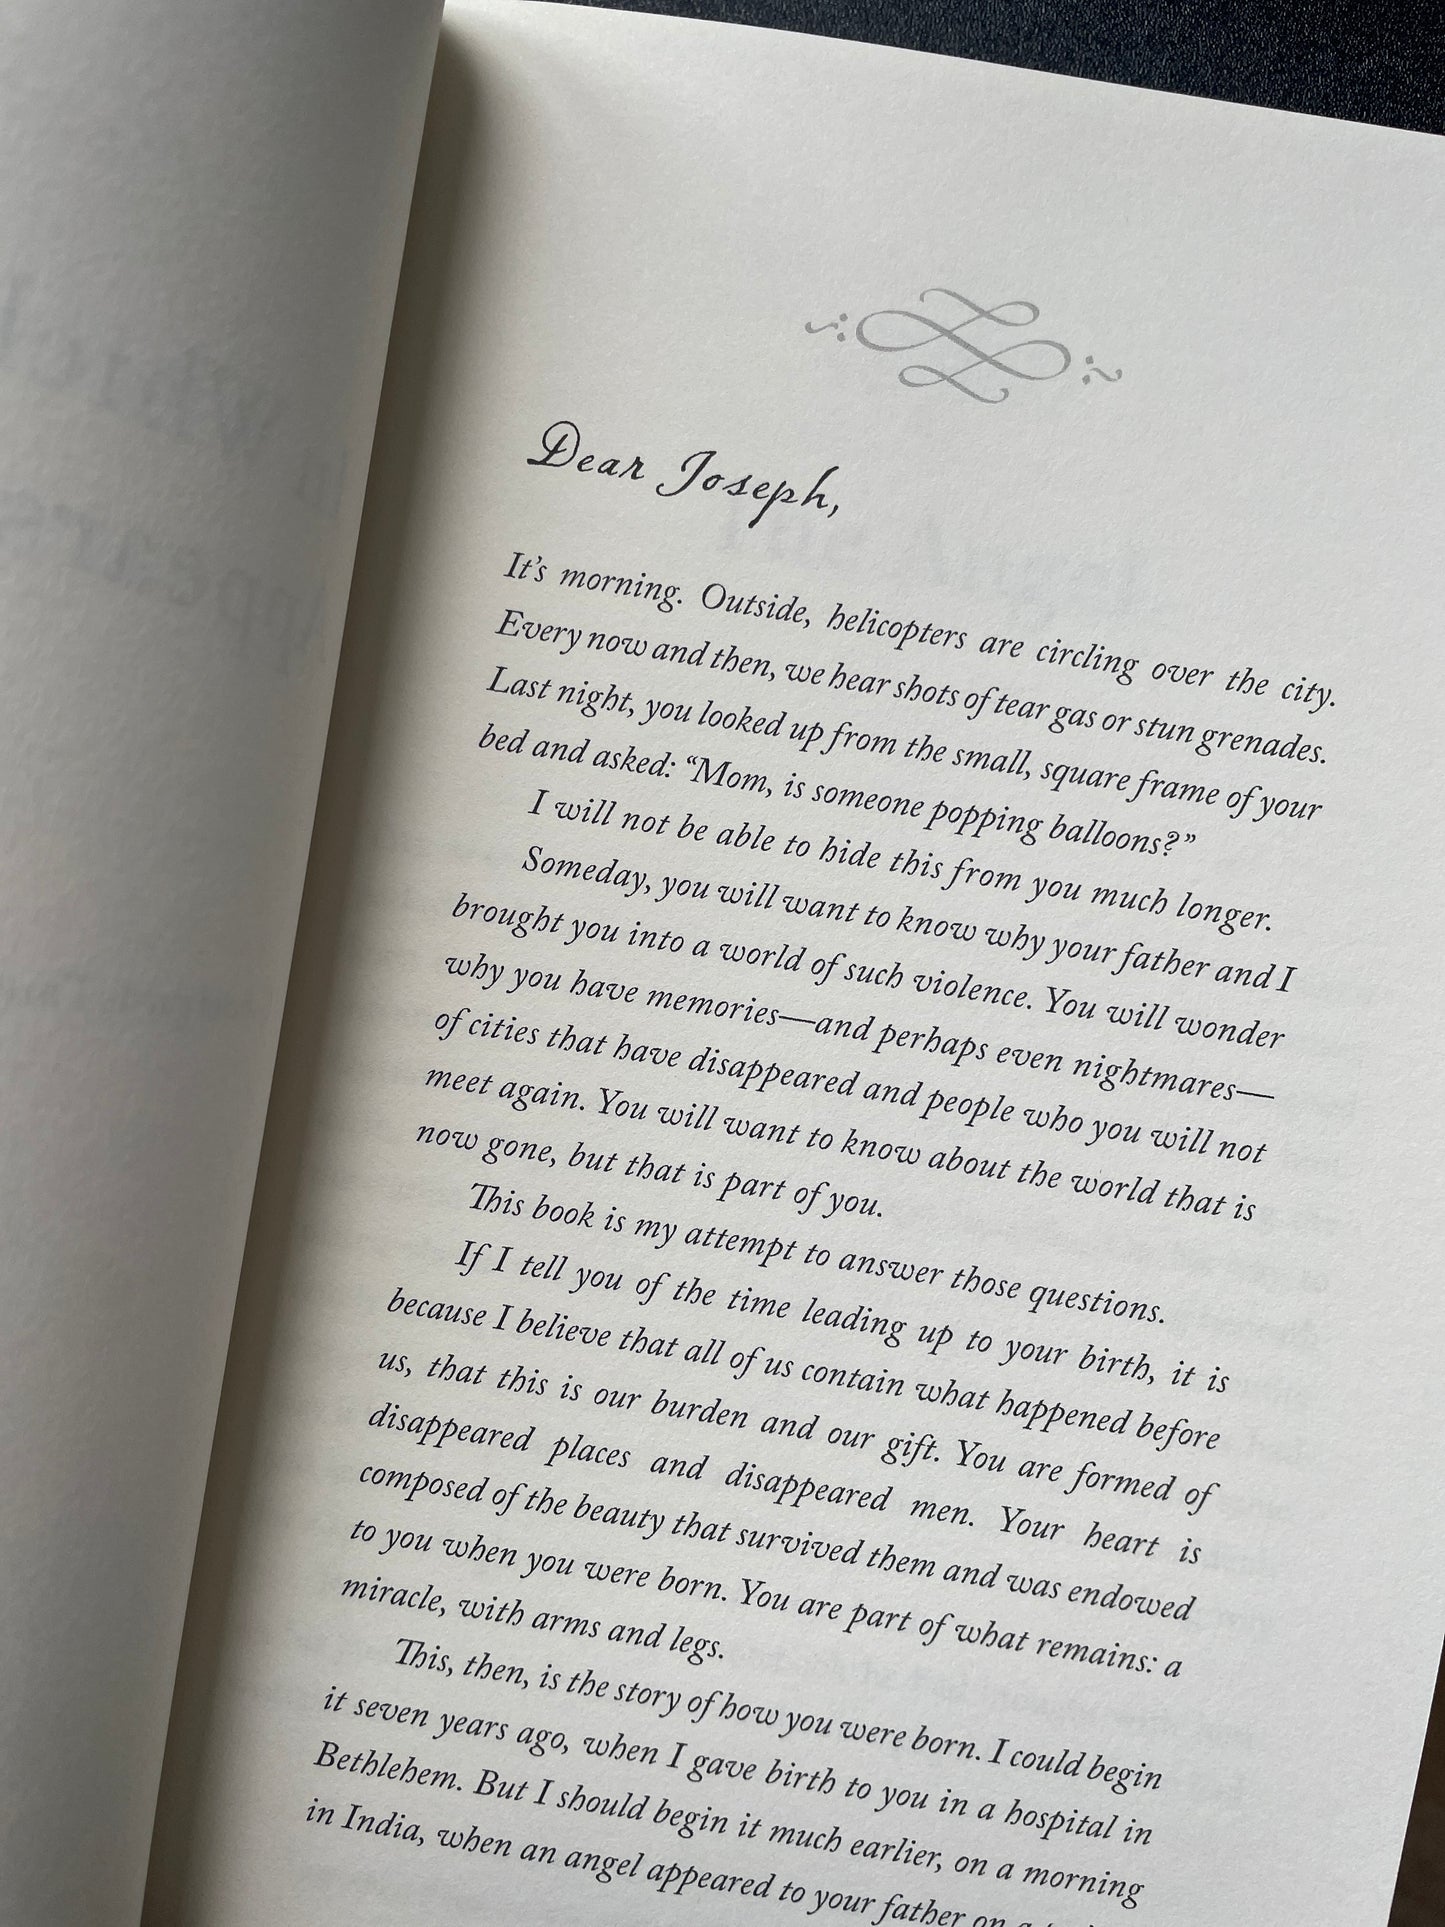 Dear Joseph,
It's morning. Outside, helicopters are circling over the city.
Every now and then, we hear shots of tear gas or stun grenades.
Last night, you looked up from the small, square frame of your
bed and asked: “Mom, is someone popping balloons?”
I will not be able to hide this from you much longer.
Someday, you will want to know why your father and I
brought you into a world of such violence. You will wonder
why you have memories—and perhaps even nightmares—
of cities that have disappeared and people who you will not
meet again. You will want to know about the world that is
now gone, but that is part of you.
This book is my attempt to answer those questions.
If I tell you of the time leading up to your birth, it is
because I believe that all of us contain what happened before
us, that this is our burden and our gift. You are formed of
disappeared places and disappeared men. Your heart is
composed of the beauty that survived them and was endowed
to you when you were born. You are part of what remains: a
miracle, with arms and legs.
This, then, is the story of how you were born. I could begin
it seven years ago, when I gave birth to you in a hospital in
Bethlehem. But I should begin it much earlier, on a morning
in India, when an angel appeared to your father on a